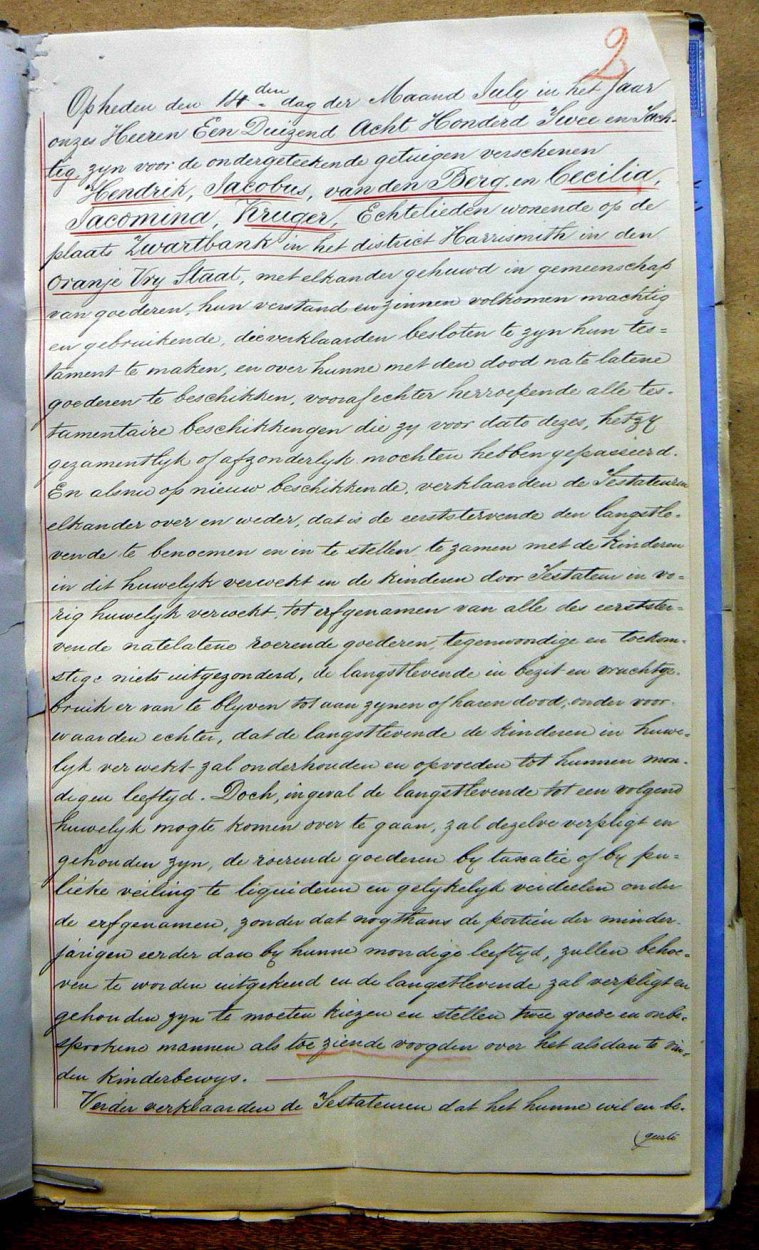 2
Op heden den 14den dag der Maand July in het Jaar
onzes Heeren Een Duizend Acht Honderd Twee en Tach-
tig, zyn voor de ondergeteekende getuigen verschenen
Hendrik, Jacobus, van den Berg, en Cecilia,
Jacomina, Kruger, Echtelieden wonende op de
plaats Zwartbank in het district Harrismith in den
Oranje Vry Staat, met elkander gehuwd in gemeenschap
van goederen, hun verstand en zinnen volkomen machtig
en gebruikende, die verklaarden besloten te zyn hun tes=
tament te maken, en over hunne met den dood na te latene
goederen te beschikken, vooraf echter herroepende alle tes-
tamentaire beschikkengen die zy voor dato dezes, hetzy
gezamentlyk of afzonderlyk mochten hebben gepasseerd.
En alsnu op nieuw beschikkende, verklaarden de Testateuren
elkander over en weder, dat is de eerststervende den langstle-
vende te benoemen en in te stellen te zamen met de kinderen
in dit huwelyk verwekt en de kinderen door Testateur in vo-
rig huwelyk verwekt, tot erfgenamen van alle des eerstster-
vende natelatene roerende goederen, tegenwoordige en toekom-
stige niets uitgezonderd, de langstlevende in bezit en vruchtge-
bruik er van te blyven tot aan zynen of haren dood, onder voor-
waarden echter, dat de langstlevende de kinderen in huwe-
lyk verwekt zal onderhouden en opvoeden tot hunnen mon-
digen leeftyd. Doch, ingeval de langstlevende tot een volgend
huwelyk mogte komen over te gaan, zal dezelve verpligt en
gehouden zyn, de roerende goederen by taxatie of by pu-
lieke veiling te liquideren en gelykelyk verdeelen onder
de erfgenamen, zonder dat nogthans de portien der minder-
jarigen eerder dan by hunne mondige leeftyd, zullen behoe-
ven te worden uitgekeerd en de langstlevende zal verpligt en
gehouden zyn te moeten kiezen en stellen twee goede en onbe-
sprokene mannen als toeziende voogden over het alsdan te vin-
den kinderbewys.
Verder verklaarden de Testateuren dat het hunne wil en be-
geerte